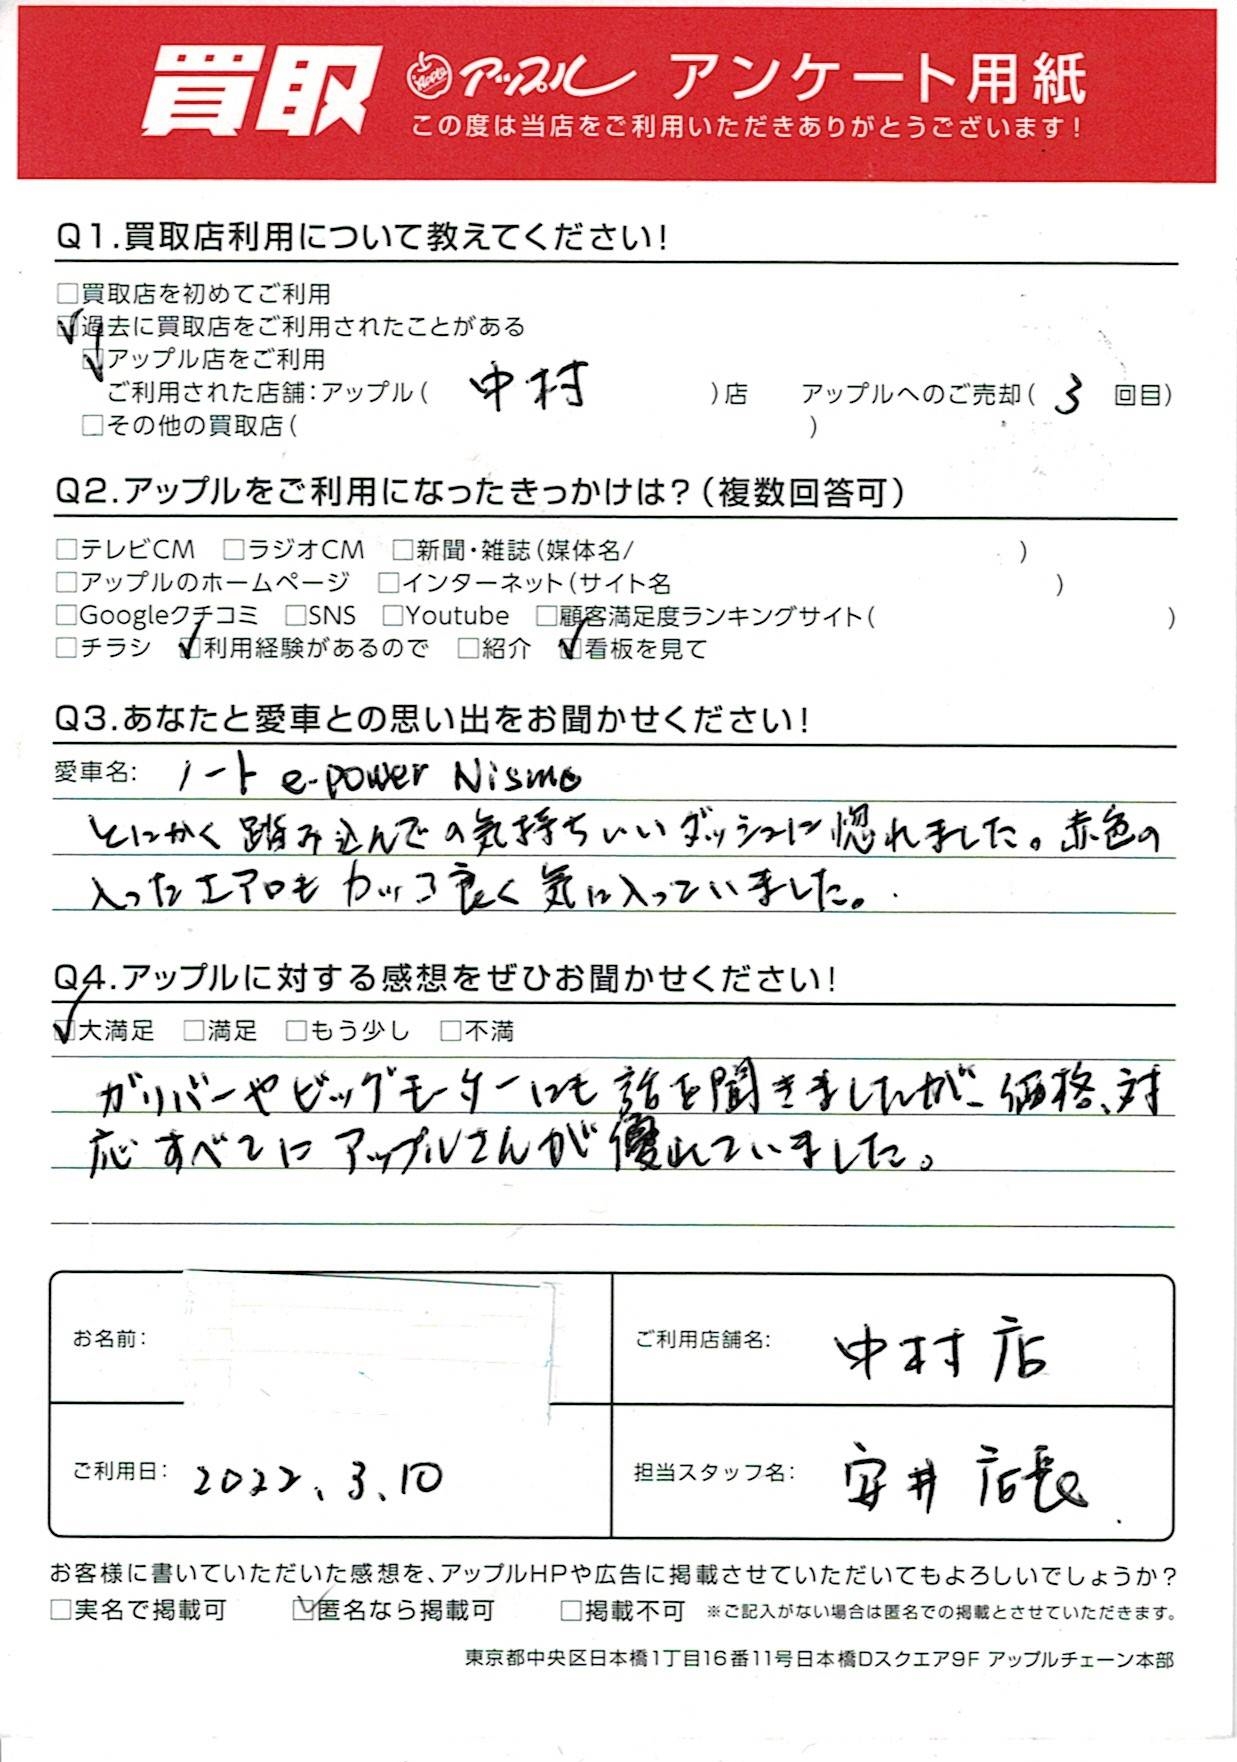 買取 Apple アップル アンケート用紙
この度は当店をご利用いただきありがとうございます!
Q1.買取店利用について教えてください!
□買取店を初めてご利用
☑過去に買取店をご利用されたことがある
☑アップル店をご利用
ご利用された店舗:アップル( 中村 )店 アップルへのご売却( 3 回目)
□その他の買取店( )
Q2.アップルをご利用になったきっかけは?(複数回答可)
□テレビCM □ラジオCM □新聞・雑誌(媒体名/ )
□アップルのホームページ □インターネット(サイト名 )
□Googleクチコミ □SNS □Youtube □顧客満足度ランキングサイト( )
□チラシ ☑利用経験があるので □紹介 ☑看板を見て
Q3.あなたと愛車との思い出をお聞かせください!
愛車名: ノート e-power Nismo
とにかく踏み込んでの気持ちいいダッシュに惚れました。赤色の
入ったエアロもカッコ良く気に入っていました。
Q4.アップルに対する感想をぜひお聞かせください!
☑大満足 □満足 □もう少し □不満
ガリバーやビッグモーターにも話を聞きましたが、価格、対
応すべてにアップルさんが優れていました。
お名前: ご利用店舗名: 中村店
ご利用日: 2022.3.10 担当スタッフ名: 安井店長
お客様に書いていただいた感想を、アップルHPや広告に掲載させていただいてもよろしいでしょうか?
□実名で掲載可 ☑匿名なら掲載可 □掲載不可 ※ご記入がない場合は匿名での掲載とさせていただきます。
東京都中央区日本橋1丁目16番11号日本橋Dスクエア9F アップルチェーン本部